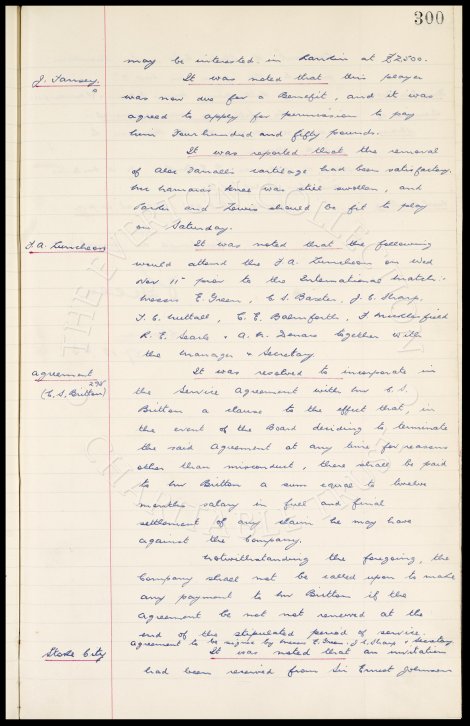 300
may be interested in Rankin at £2500.
J. Tansey.
It was noted that this player
was now due for a Benefit, and it was
agreed to apply for permission to pay
him Four hundred and fifty pounds.
It was reported that the removal
of Alex Farrall's cartilage had been satisfactory.
Mr Lamara's knee was still swollen, and
and Lewis should be fit to play
on Saturday.
F.A. Luncheon
It was noted that the following
would attend the F.A. Luncheon on Wed
Nov 11th prior to the International match:-
Messrs E. Green, C. S. Baxter, J. C. Sharp,
T. C. Nuttall, C. E. Balmforth, F. Micklesfield
R. E. Searle & A. W. Denaro together with
the Manager & Secretary.
Agreement
It was resolved to incorporate in
298
(C. S. Britton)
the Service Agreement with Mr C. S.
Britton a clause to the effect that, in
the event of the Board deciding to terminate
the said Agreement at any time for reasons
other than misconduct, there shall be paid
to Mr Britton a sum equal to twelve
months salary in full and final
settlement of any claim he may have
against the Company.
Notwithstanding the foregoing, the
Company shall not be called upon to make
any payment to Mr Britton if the
Agreement be not not renewed at the
end of the stipulated period of service.
Agreement to be signed by Messrs E. Green, J. C. Sharp & Secretary
Stoke City
It was noted that an invitation
had been received from Sir Ernest Johnson